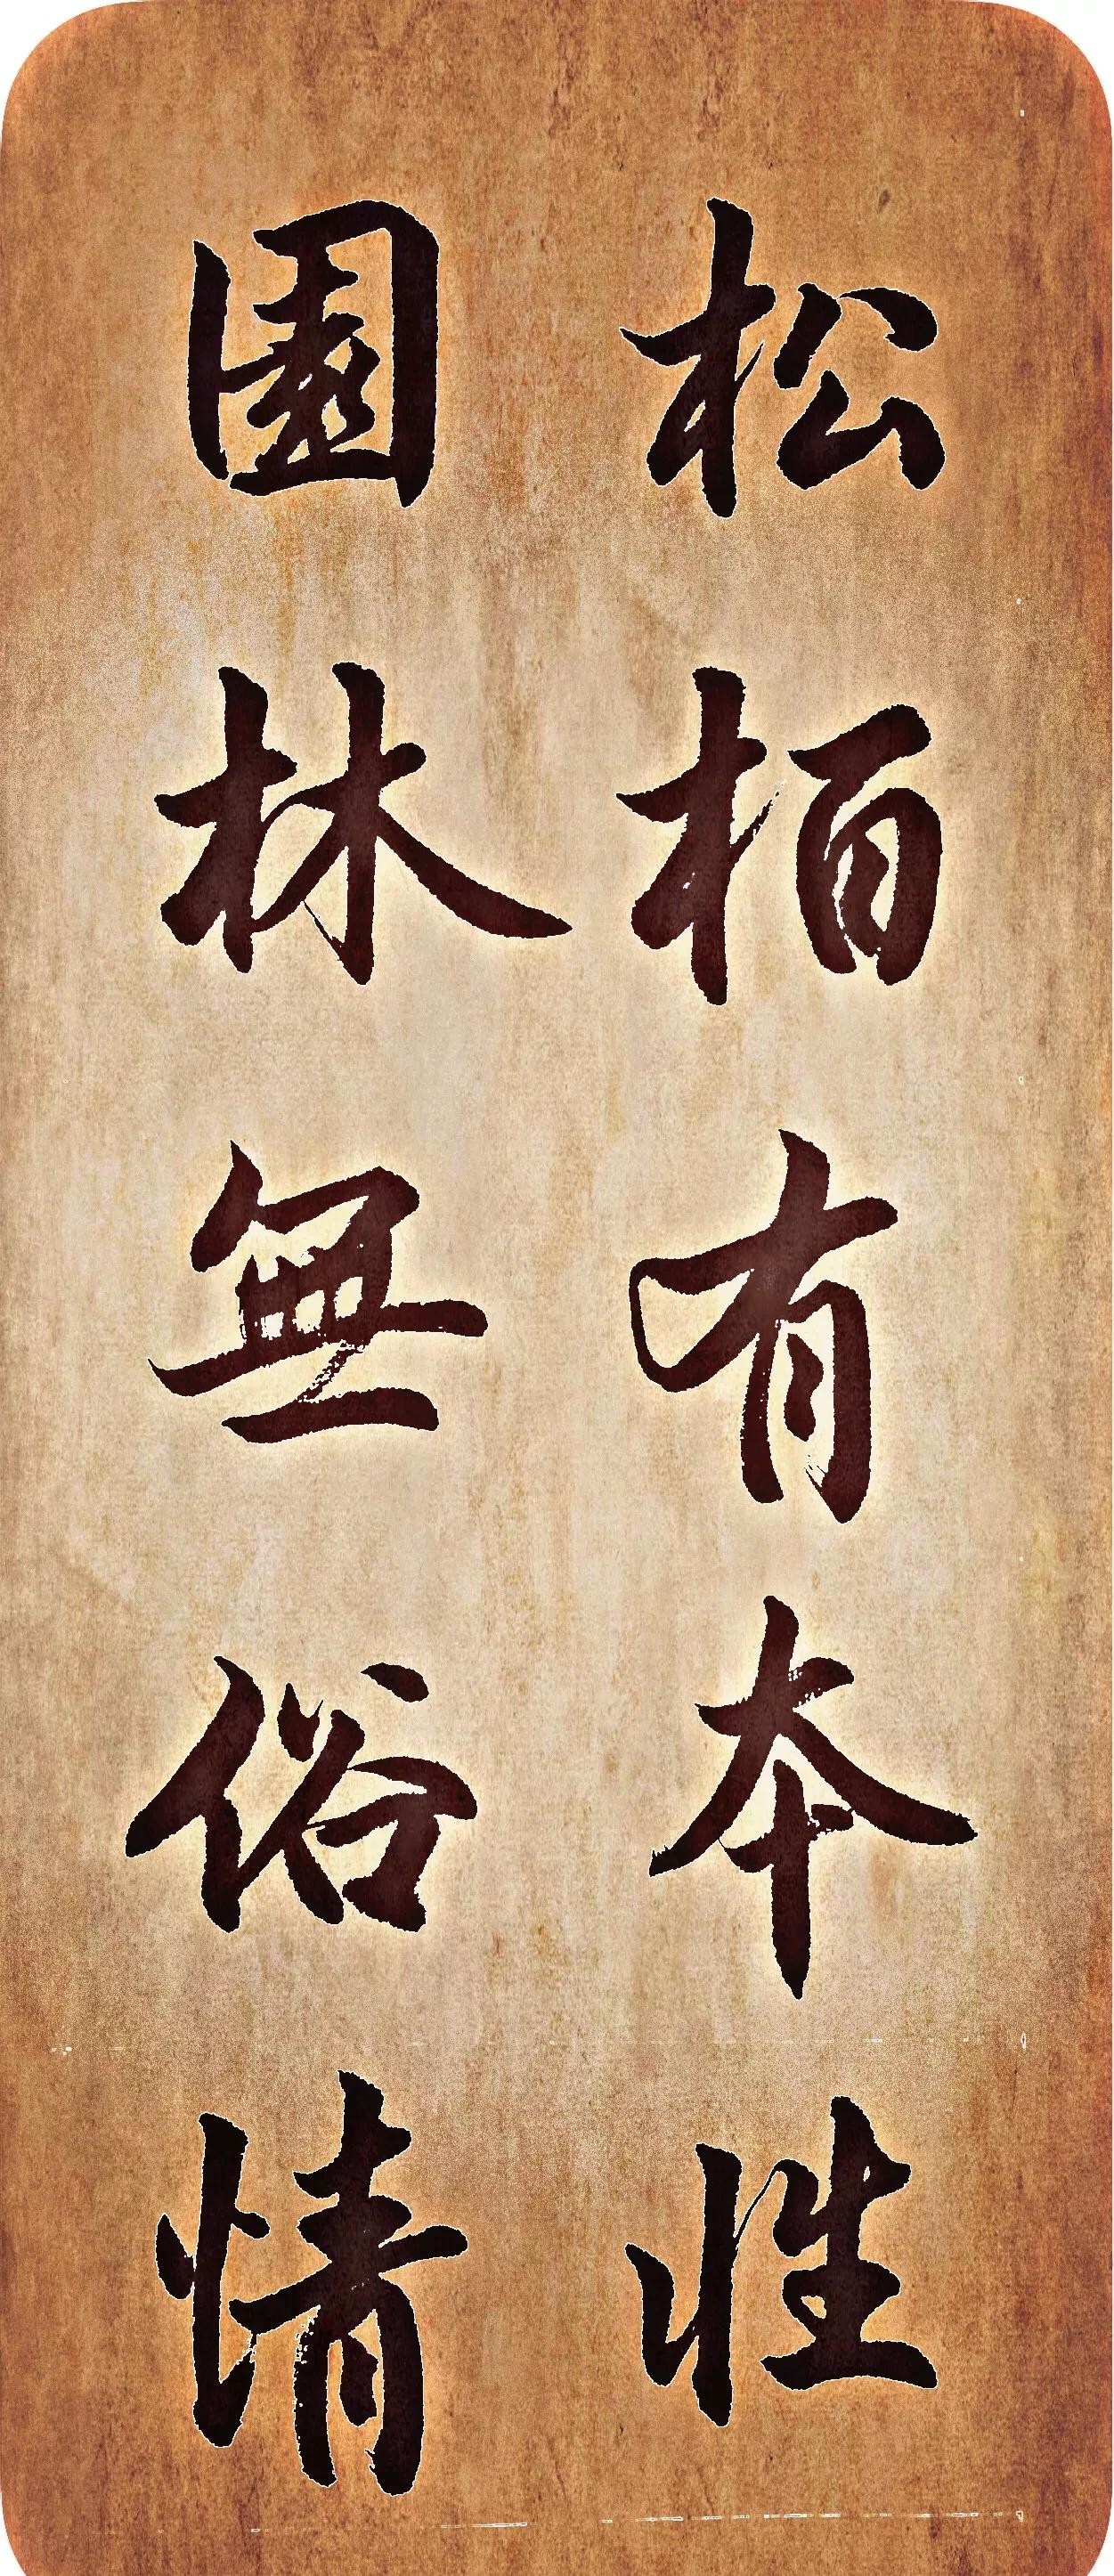 松柏有本性
園林無俗情